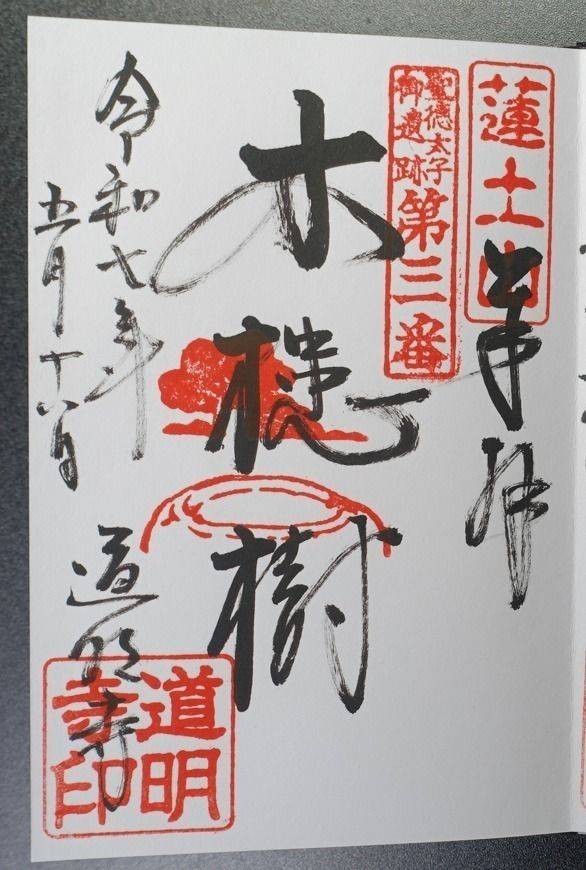 蓮土山
奉拝
聖徳太子
御遺跡
第三番
木槵樹
令和七年
五月十六日
道明寺
道明
寺印